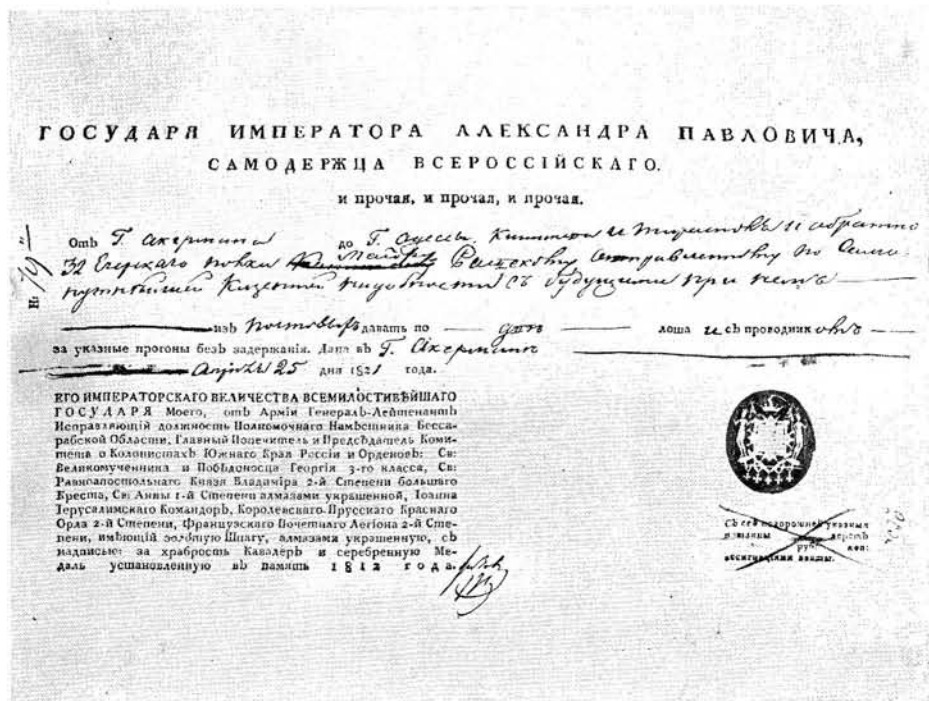 ГОСУДАРЯ ИМПЕРАТОРА АЛЕКСАНДРА ПАВЛОВИЧА,
САМОДЕРЖЦА ВСЕРОССІЙСКАГО.
и прочая, и прочая, и прочая.
Отъ Г. Акермана до Г. Одессы, и обратно
32 Егерскаго полка Маіору Раевскому отправленному по
Казенной надобности съ будущими при немъ
изъ давать по две лоша и съ проводникомъ
за указные прогоны безъ задержанія. Дана въ Г. Акермане
25 дня 1821 года.
ЕГО ИМПЕРАТОРСКАГО ВЕЛИЧЕСТВА ВСЕМИЛОСТИВѢЙШАГО
ГОСУДАРЯ Моего, отъ Арміи Генералъ-Лейтенантъ
Исправляющій должность Полномочнаго Намѣстника Бесса-
рабской Области, Главный Попечитель и Предсѣдатель Коми-
тета о Колонистахъ Южнаго Края Россіи и Орденовъ: Св:
Великомученника и Побѣдоносца Георгія 3-го класса, Св:
Равноапостольнаго Князя Владиміра 2-й Степени большаго
Креста, Св: Анны 1-й Степени алмазами украшенной, Іоанна
Іерусалимскаго Командоръ, Королевскаго-Прусскаго Краснаго
Орла 2-й Степени, Французскаго Почетнаго Легіона 2-й Сте-
пени, имѣющій золотую Шпагу, алмазами украшенную, съ
надписью: за храбрость Кавалеръ и серебренную Ме-
даль установленную въ память 1812 года.
Съ сей подорожней указныя
руб коп:
ассигнаціями взяты.